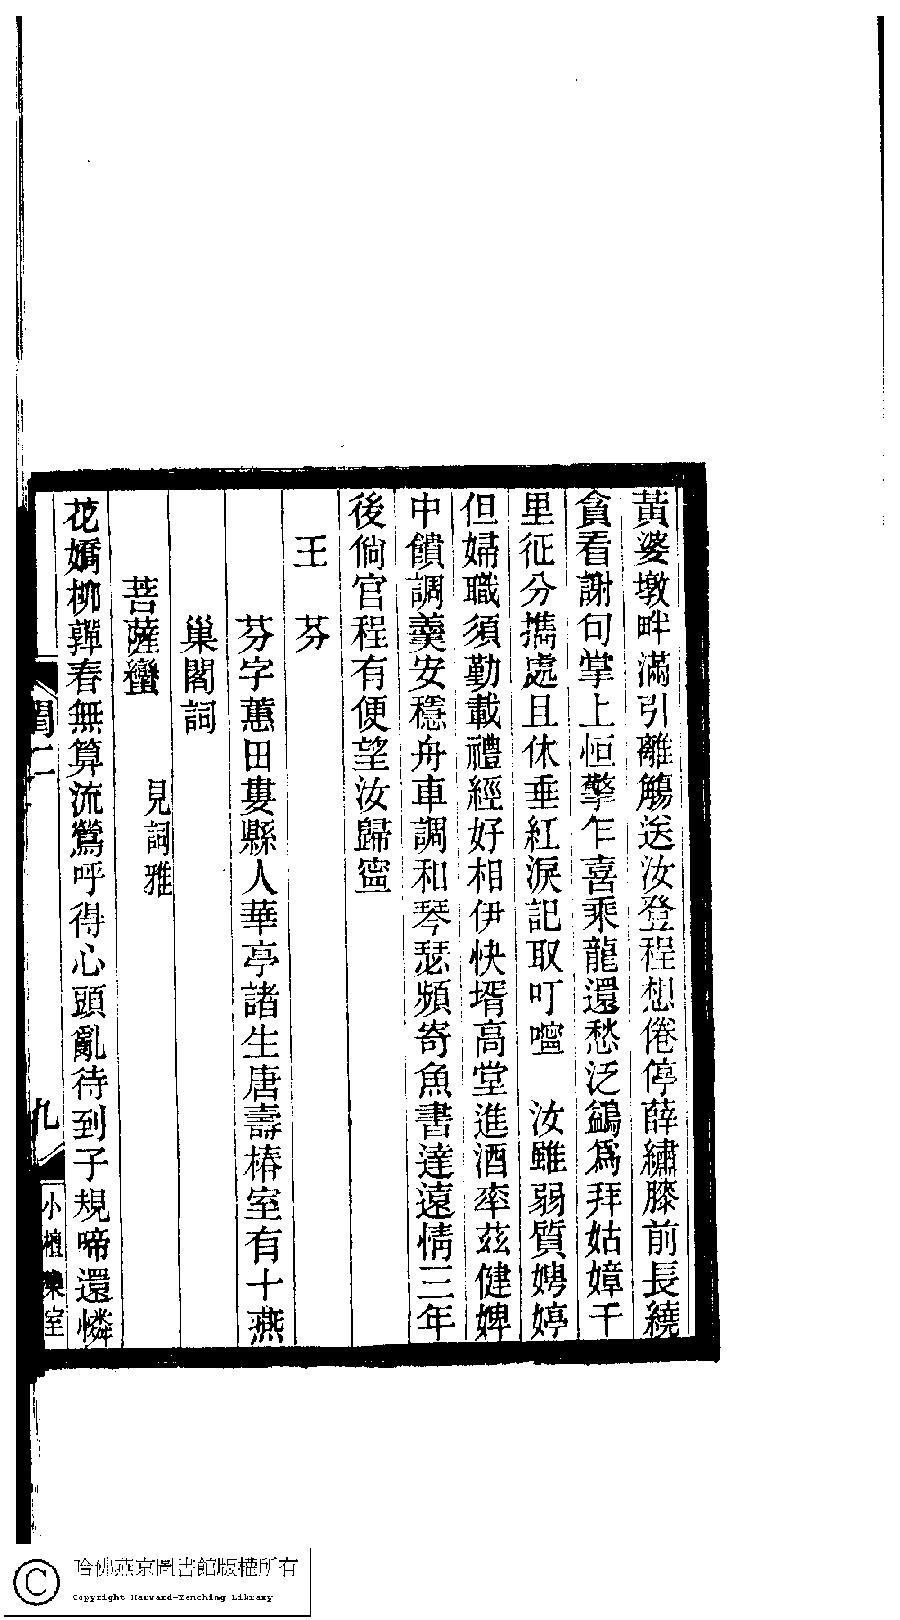 黃婆墩畔滿引離觴送汝登程想倦停薛繡膝前長繞
貪看謝句掌上恒擎乍喜乘龍還愁泛鷁爲拜姑嫜千
里征分攜處且休垂紅淚記取叮嚀　汝雖弱質娉婷
但婦職須勤載禮經好相伊快壻高堂進酒率茲健婢
中饋調羹安穩舟車調和琴瑟頻寄魚書達遠情三年
後倘官程有便望汝歸寧
王　芬
芬字蕙田婁縣人華亭諸生唐壽椿室有十燕
巢閣詞
菩薩蠻
見詞雅
花嬌柳嚲春無算流鶯呼得心頭亂待到子規啼還憐
閨二
九
小檀欒室
哈佛燕京圖書館版權所有
Copyright Harvard-Yenching Library